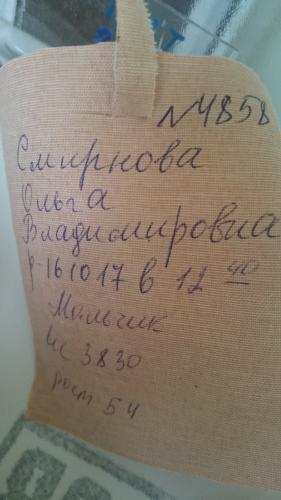 №4858
Смирнова
Ольга
Владимировна
р-161017 в 12 40
Мальчик
вс 3830
рост 54